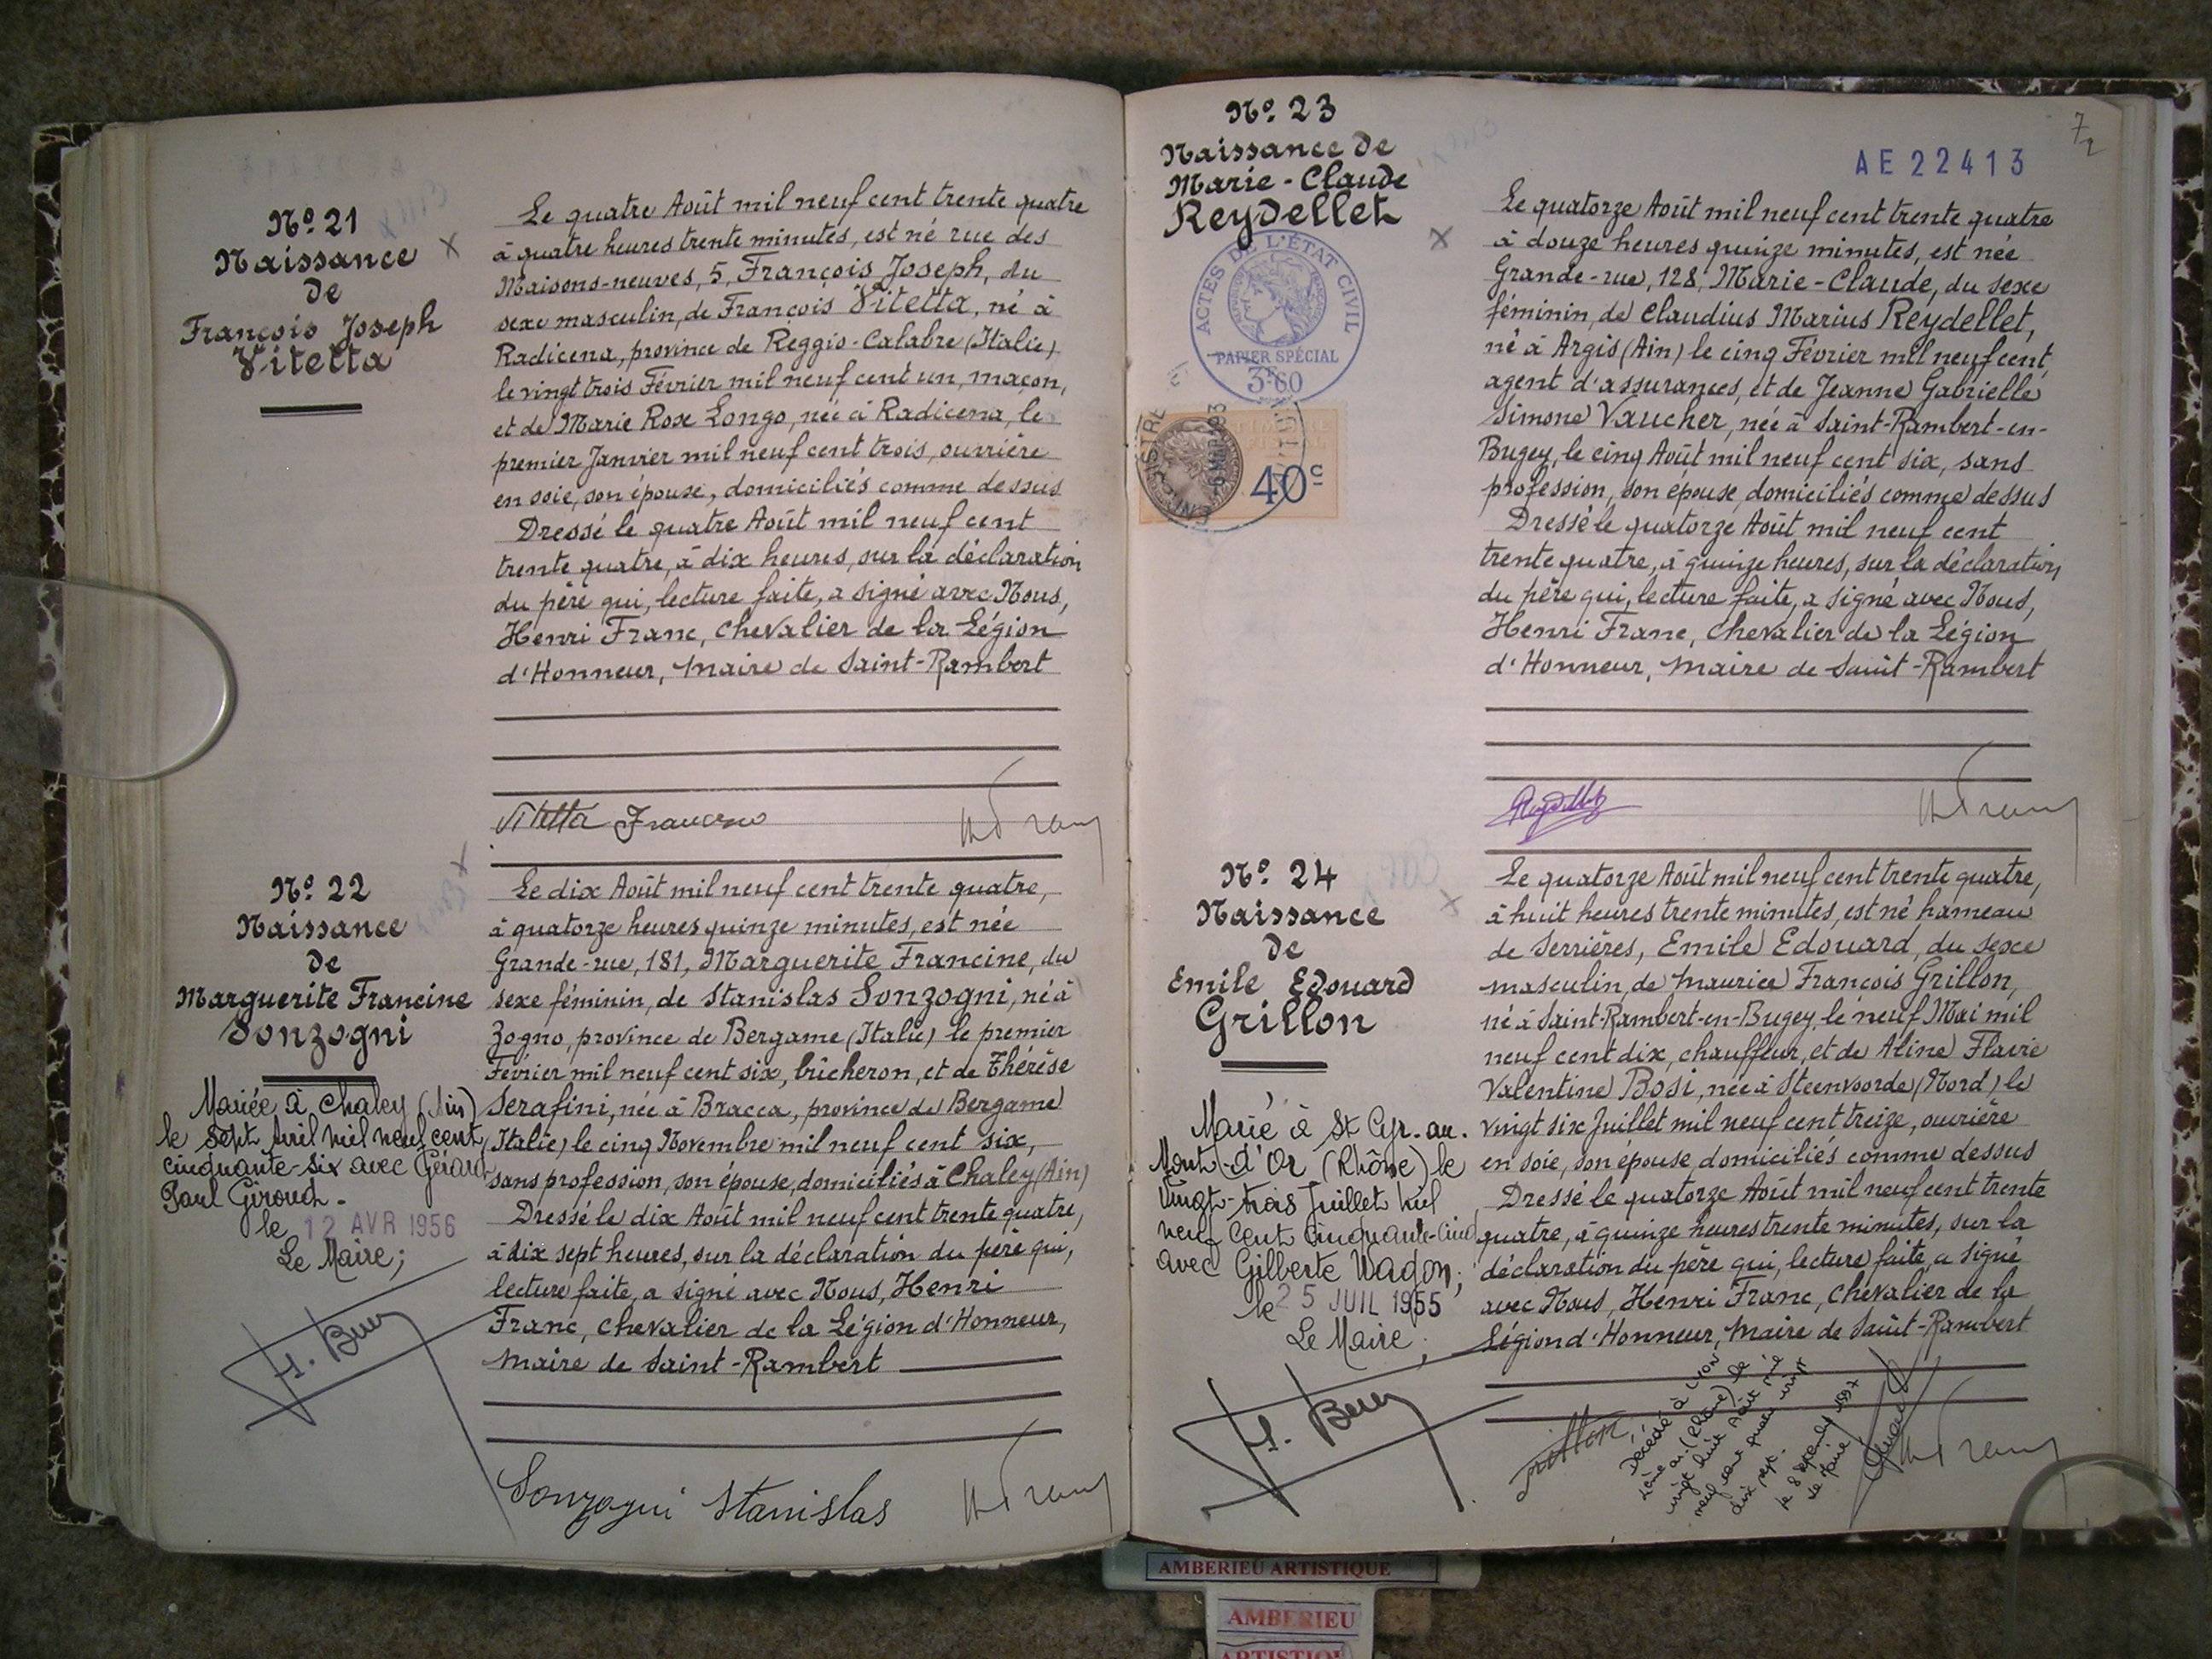 Nº 21
Naissance
de
François Joseph
Vitetta
Le quatre Août mil neuf cent trente quatre
à quatre heures trente minutes, est né rue des
Maisons-neuves, 5, François Joseph, du
sexe masculin, de François Vitetta, né à
Radicena, province de Reggio-Calabre (Italie)
le vingt trois Février mil neuf cent un, maçon,
et de Marie Rose Longo, née à Radicena, le
premier Janvier mil neuf cent trois, ouvrière
en soie, son épouse, domiciliés comme dessus
Dressé le quatre Août mil neuf cent
trente quatre, à dix heures, sur la déclaration
du père qui, lecture faite, a signé avec Nous,
Henri Franc, Chevalier de la Légion
d'Honneur, Maire de Saint-Rambert
Vitetta Francesco
Nº 22
Naissance
de
Marguerite Francine
Sonzogni
Mariée à Chaley (Ain)
le sept Avril mil neuf cent
cinquante-six avec Gérard
Paul Giroud.
le 12 AVR 1956
Le Maire;
Le dix Août mil neuf cent trente quatre,
à quatorze heures quinze minutes, est née
Grande-rue, 181, Marguerite Francine, du
sexe féminin, de Stanislas Sonzogni, né à
Zogno, province de Bergame (Italie) le premier
Février mil neuf cent six, bûcheron, et de Thérèse
Serafini, née à Bracca, province de Bergame
(Italie) le cinq Novembre mil neuf cent six,
sans profession, son épouse, domiciliés à Chaley (Ain)
Dressé le dix Août mil neuf cent trente quatre,
à dix sept heures, sur la déclaration du père qui,
lecture faite, a signé avec Nous, Henri
Franc, Chevalier de la Légion d'Honneur,
Maire de Saint-Rambert
Sonzogni Stanislas
Nº 23
Naissance de
Marie-Claude
Reydellet
ACTES DE L'ÉTAT CIVIL
PAPIER SPÉCIAL
3F60
40c
AE22413
72
Le quatorze Août mil neuf cent trente quatre
à douze heures quinze minutes, est née
Grande-rue, 128, Marie-Claude, du sexe
féminin, de Claudius Marius Reydellet,
né à Argis (Ain) le cinq Février mil neuf cent,
agent d'assurances, et de Jeanne Gabrielle
Simone Vaucher, née à Saint-Rambert-en-
Bugey, le cinq Août mil neuf cent six, sans
profession, son épouse, domiciliés comme dessus
Dressé le quatorze Août mil neuf cent
trente quatre, à quinze heures, sur la déclaration
du père qui, lecture faite, a signé avec Nous,
Henri Franc, Chevalier de la Légion
d'Honneur, Maire de Saint-Rambert
Reydellet
Nº 24
Naissance
de
Emile Edouard
Grillon
Marié à St Cyr-au-
Mont-d'Or (Rhône) le
vingt-trois Juillet mil
neuf cent cinquante-cinq
avec Gilberte Wagon;
le 25 JUIL 1955
Le Maire,
Le quatorze Août mil neuf cent trente quatre,
à huit heures trente minutes, est né hameau
de Serrières, Emile Edouard, du sexe
masculin, de Maurice François Grillon,
né à Saint-Rambert-en-Bugey, le neuf Mai mil
neuf cent dix, chauffeur, et de Aline Flavie
Valentine Bosi, née à Steenvoorde (Nord) le
vingt six Juillet mil neuf cent treize, ouvrière
en soie, son épouse, domiciliés comme dessus
Dressé le quatorze Août mil neuf cent trente
quatre, à quinze heures trente minutes, sur la
déclaration du père qui, lecture faite, a signé
avec Nous, Henri Franc, Chevalier de la
Légion d'Honneur, Maire de Saint-Rambert
Grillon
Décédé à Lyon
(Rhône) le
vingt huit Août mil
neuf cent quatre vingt
dix sept.
le 8 septembre 1997
Le Maire
AMBERIEU ARTISTIQUE
AMBERIEU
ARTISTIQUE